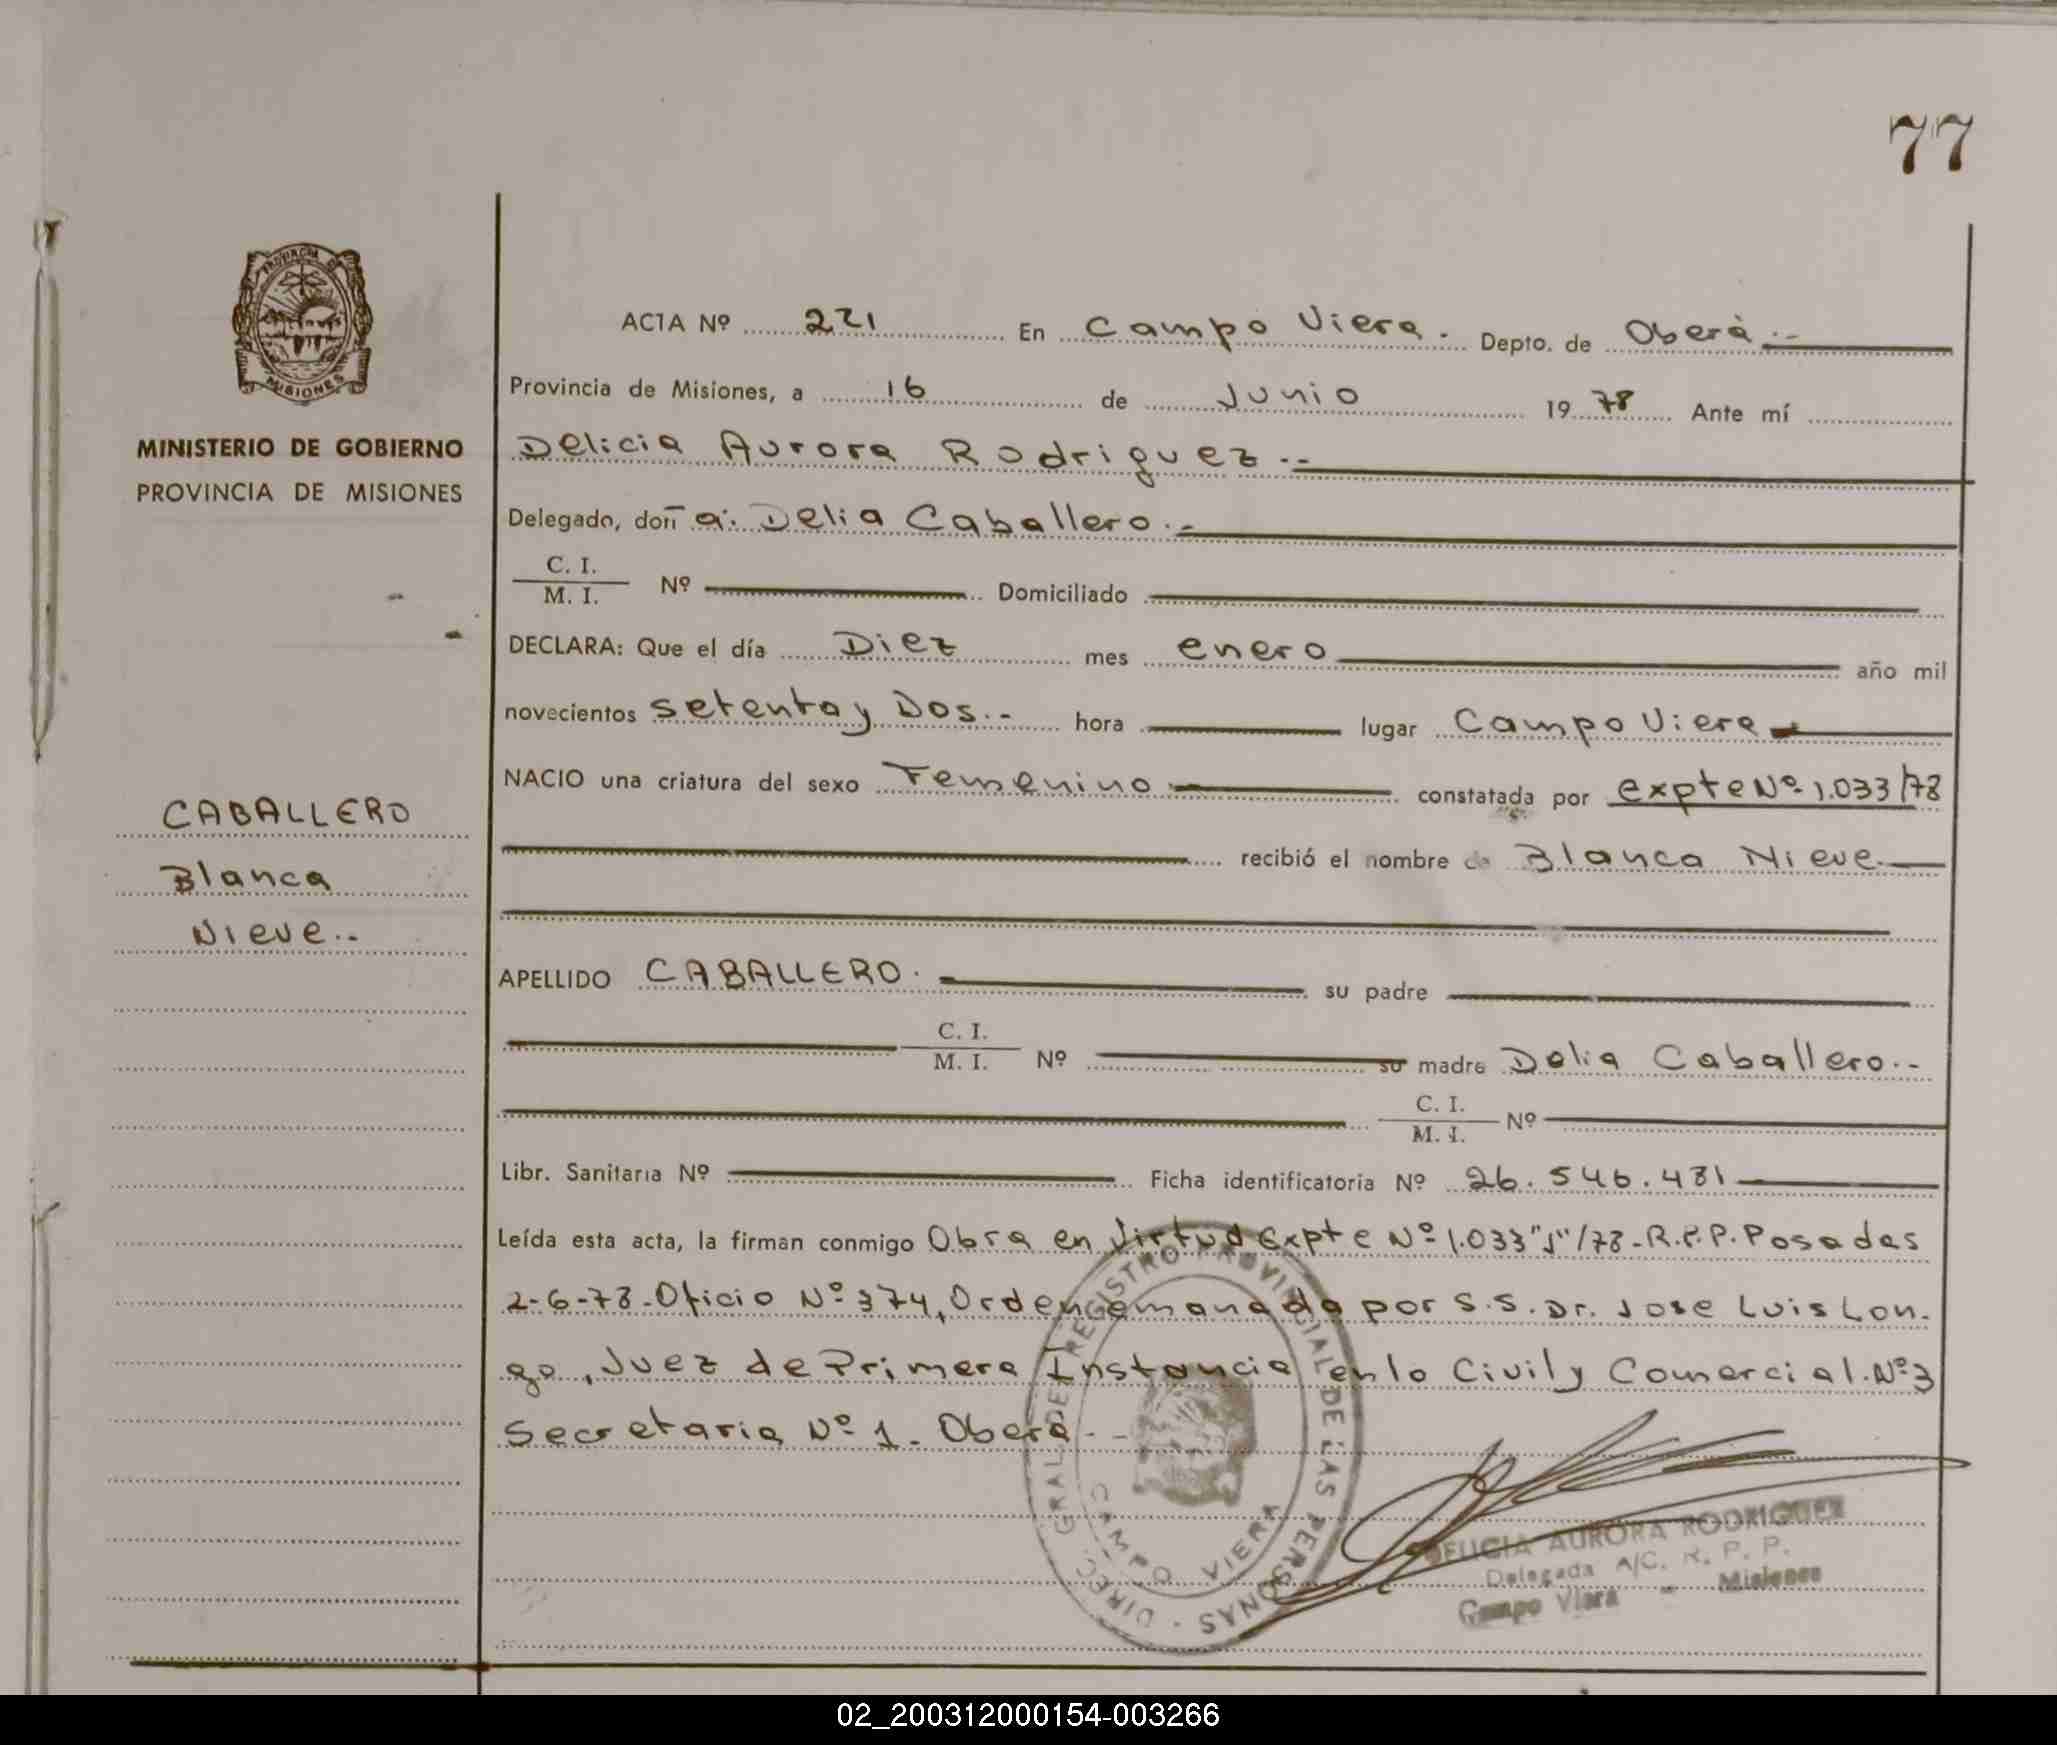 77
PROVINCIA DE
MISIONES
MINISTERIO DE GOBIERNO
PROVINCIA DE MISIONES
CABALLERO
Blanca
Nieve..
ACTA Nº 221 En Campo Viera. Depto. de Oberá.-
Provincia de Misiones, a 16 de Junio 1978 Ante mí
Delicia Aurora Rodriguez.-
Delegado, don a. Delia Caballero.-
C. I.
M. I. Nº Domiciliado
DECLARA: Que el día Diez mes enero año mil
novecientos setenta y Dos.- hora lugar Campo Viera
NACIO una criatura del sexo Femenino constatada por expte Nº 1.033/78
recibió el nombre de Blanca Nieve.
APELLIDO CABALLERO. su padre
C. I.
M. I. Nº su madre Delia Caballero.-
C. I.
M. I. Nº
Libr. Sanitaria Nº Ficha identificatoria Nº 26.546.481
Leída esta acta, la firman conmigo Obra en virtud Expte Nº 1.033"J"/78-R.P.P. Posadas
2-6-78-Oficio Nº 374, Orden emanada por S.S. Dr. Jose Luis Lon-
go, Juez de Primera Instancia en lo Civil y Comercial. Nº 3
Secretaria Nº 1. Oberá.-
DIREC. GRAL. DEL REGISTRO PROVINCIAL DE LAS PERSONAS
CAMPO VIERA
DELICIA AURORA RODRIGUEZ
Delegada A/C. R. P. P.
Campo Viera - Misiones
02_200312000154-003266